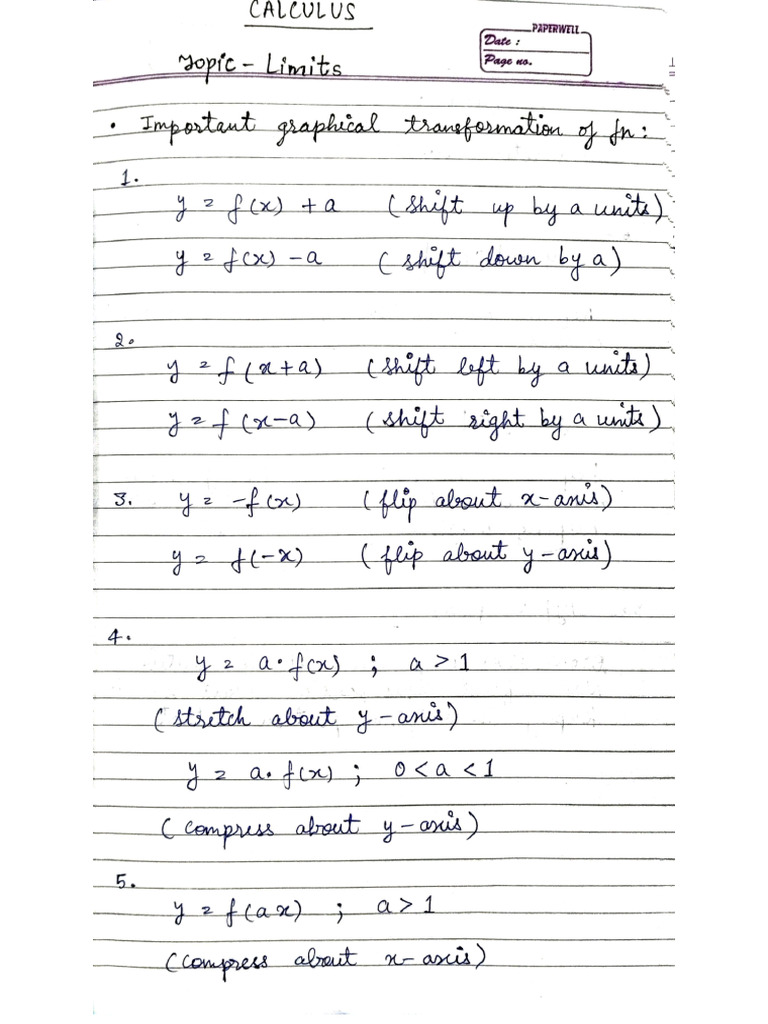 CALCULUS
PAPERWELL
Date :
Page no.
Topic - Limits
• Important graphical transformation of fn :
1.
y = f(x) + a (shift up by a units)
y = f(x) - a (shift down by a)
2.
y = f(x+a) (shift left by a units)
y = f(x-a) (shift right by a units)
3. y = -f(x) (flip about x-axis)
y = f(-x) (flip about y-axis)
4.
y = a • f(x) ; a > 1
(stretch about y-axis)
y = a • f(x) ; 0 < a < 1
(compress about y-axis)
5.
y = f(ax) ; a > 1
(compress about x-axis)